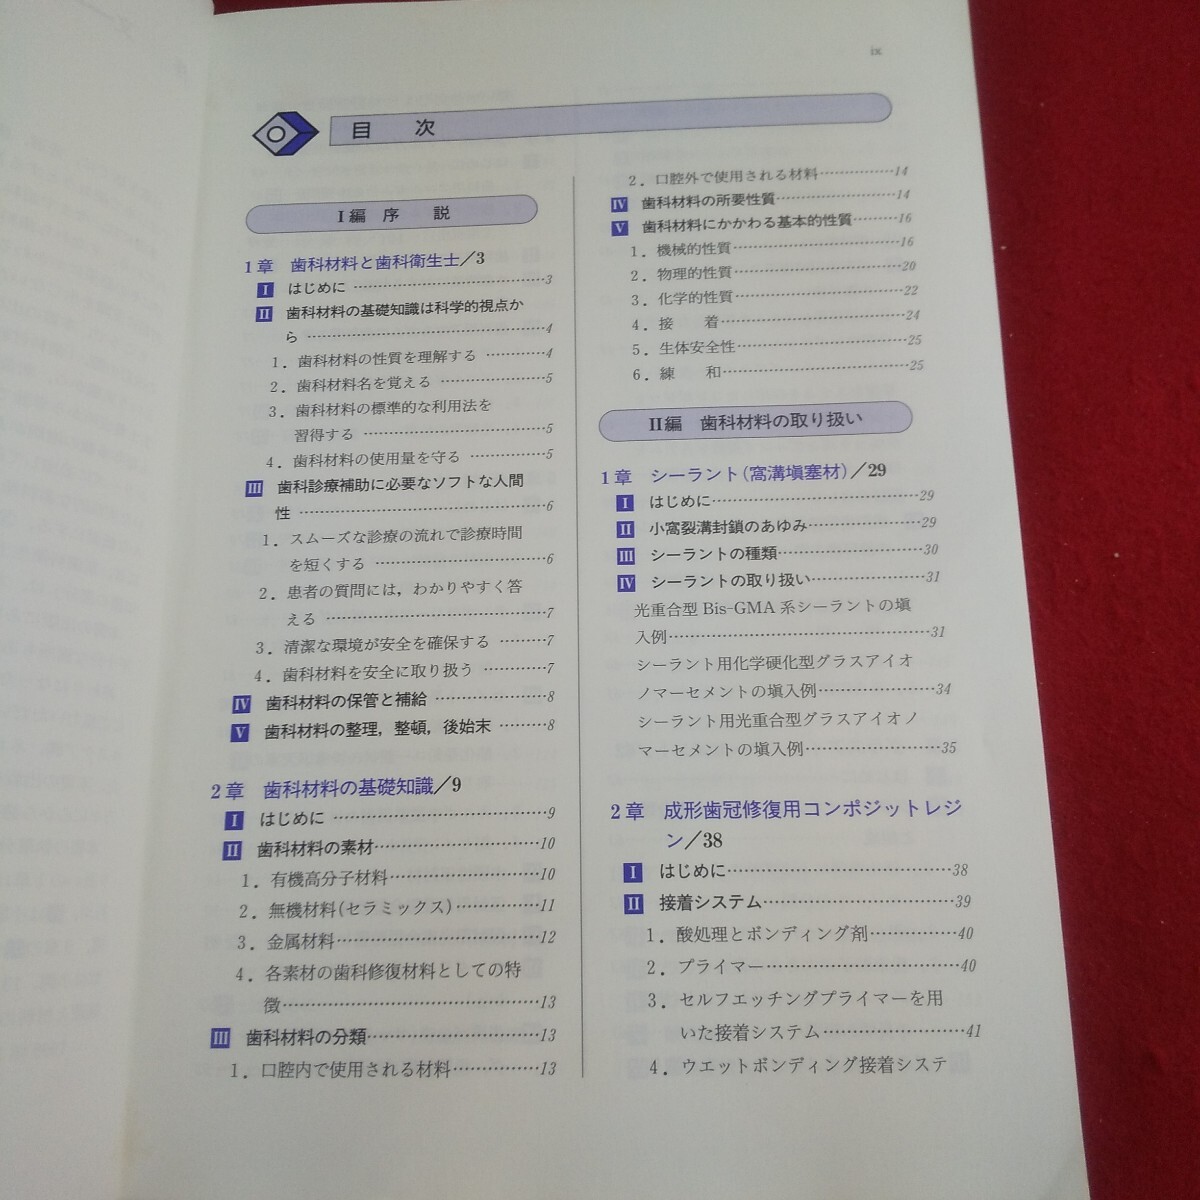 ix
目　次
I編 序　説
1章　歯科材料と歯科衛生士／3
I はじめに……………………3
II 歯科材料の基礎知識は科学的視点か
ら……………………4
1．歯科材料の性質を理解する…………4
2．歯科材料名を覚える…………………5
3．歯科材料の標準的な利用法を
習得する……………………5
4．歯科材料の使用量を守る……………5
III 歯科診療補助に必要なソフトな人間
性……………………6
1．スムーズな診療の流れで診療時間
を短くする……………………6
2．患者の質問には，わかりやすく答
える……………………7
3．清潔な環境が安全を確保する………7
4．歯科材料を安全に取り扱う…………7
IV 歯科材料の保管と補給………………8
V 歯科材料の整理，整頓，後始末………8
2章　歯科材料の基礎知識／9
I はじめに……………………9
II 歯科材料の素材……………………10
1．有機高分子材料……………………10
2．無機材料(セラミックス)……………11
3．金属材料……………………12
4．各素材の歯科修復材料としての特
徴……………………13
III 歯科材料の分類……………………13
1．口腔内で使用される材料……………13
2．口腔外で使用される材料……………14
IV 歯科材料の所要性質…………………14
V 歯科材料にかかわる基本的性質………16
1．機械的性質……………………16
2．物理的性質……………………20
3．化学的性質……………………22
4．接　着……………………24
5．生体安全性……………………25
6．練　和……………………25
II編　歯科材料の取り扱い
1章　シーラント(窩溝塡塞材)／29
I はじめに……………………29
II 小窩裂溝封鎖のあゆみ………………29
III シーラントの種類……………………30
IV シーラントの取り扱い………………31
光重合型 Bis-GMA 系シーラントの塡
入例……………………31
シーラント用化学硬化型グラスアイオ
ノマーセメントの塡入例………………34
シーラント用光重合型グラスアイオノ
マーセメントの塡入例…………………35
2章　成形歯冠修復用コンポジットレジ
ン／38
I はじめに……………………38
II 接着システム……………………39
1．酸処理とボンディング剤……………40
2．プライマー……………………40
3．セルフエッチングプライマーを用
いた接着システム……………………41
4．ウエットボンディング接着システ